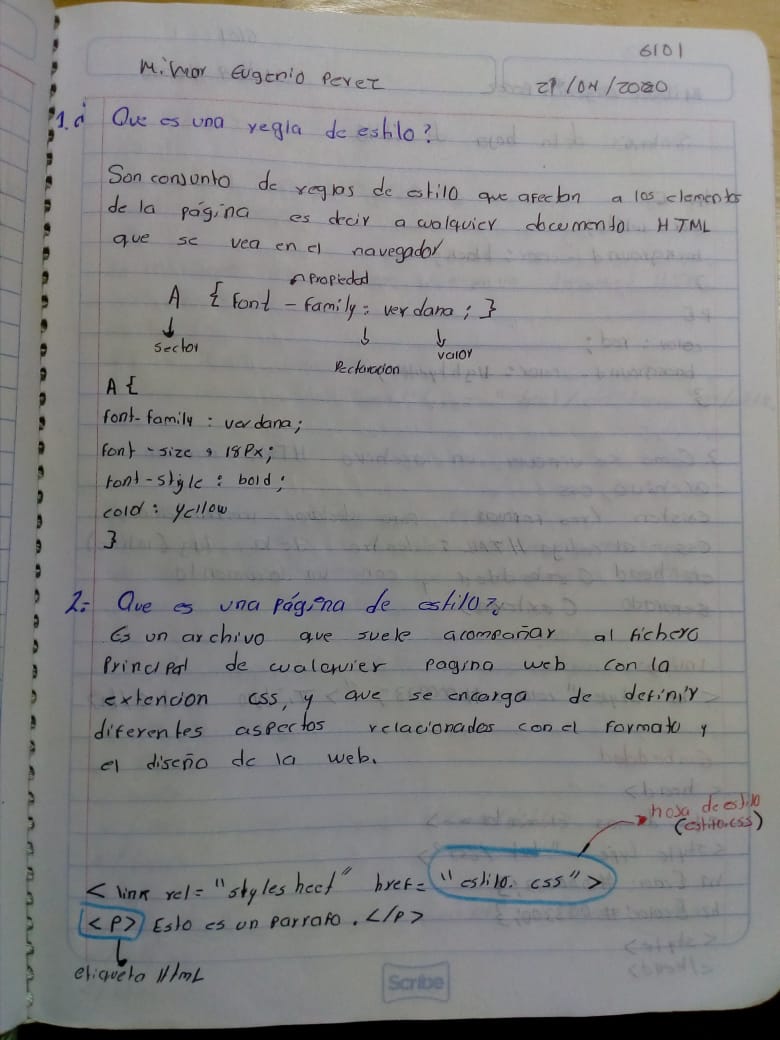 6101
Milnor Eugenio Perez
29/04/2020
1.¿ Que es una regla de estilo?
Son conjunto de reglas de estilo que afectan a los elementos
de la página es decir a cualquier documento HTML
que se vea en el navegador
Propiedad
A { font - family : verdana ; }
Sector
Declaracion
valor
A {
font-family : verdana;
font - size : 18Px;
font-style : bold;
cold : yellow
}
2:- Que es una página de estilo?
Es un archivo que suele acompañar al fichero
Principal de cualquier pagina web con la
extencion css, y que se encarga de definir
diferentes aspectos relacionados con el formato y
el diseño de la web.
hoja de estilo
(estilo.css)
< link rel= "stylesheet" href= "estilo. css">
<P> Esto es un parrafo. </P>
etiqueta HTML
Scribe